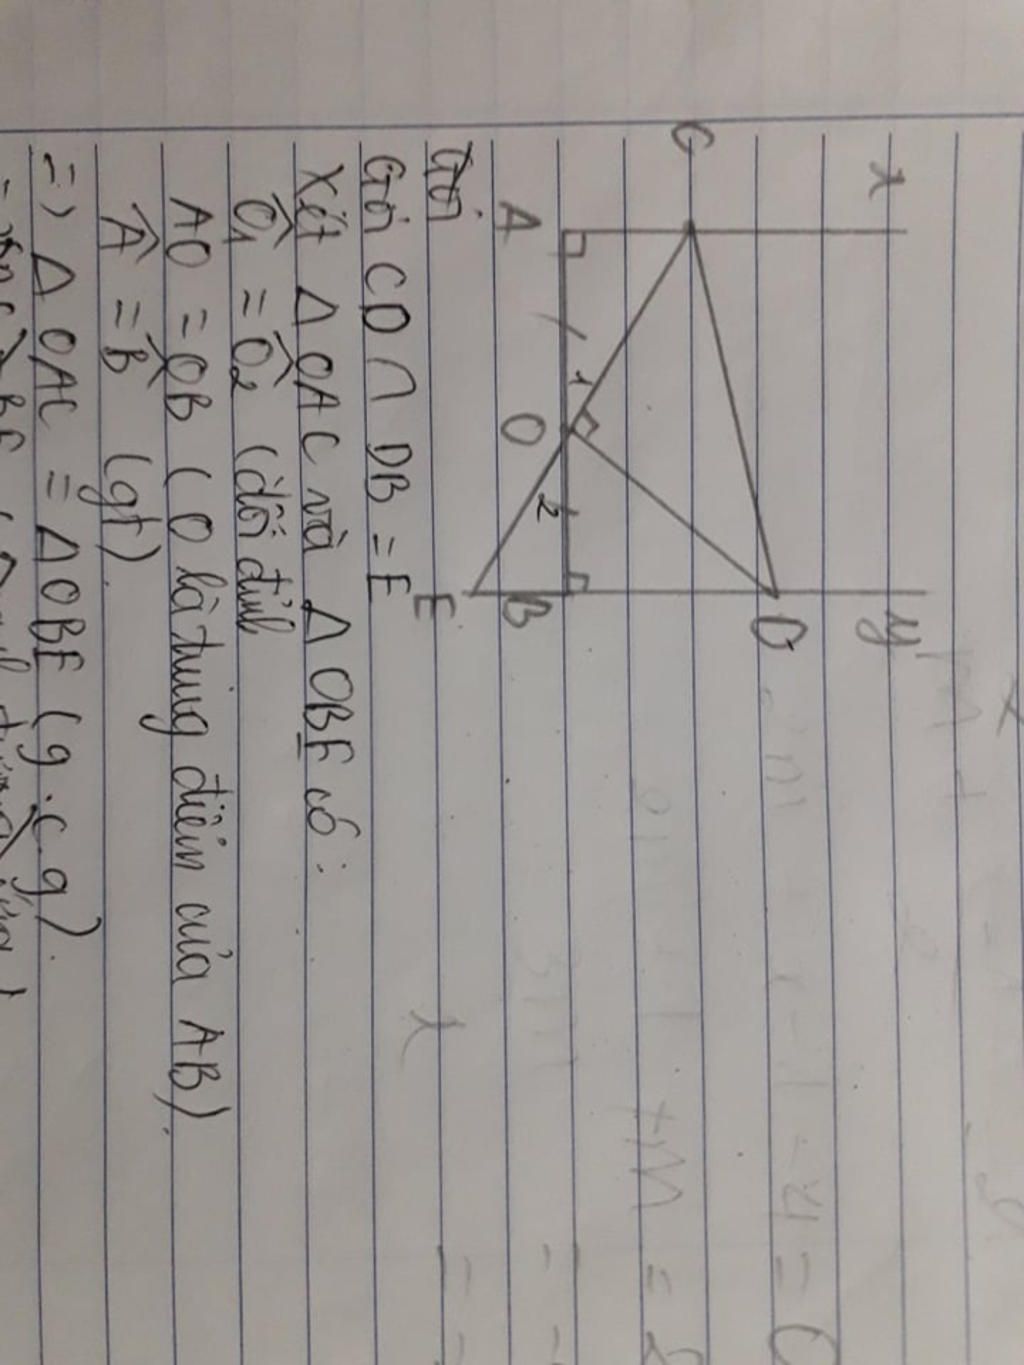 x
y
C
D
A
1
O
2
B
E
Gọi
Gọi CO ∩ DB = E
Xét Δ OAC và Δ OBE có:
Ô1 = Ô2 (đối đỉnh
AO = OB (O là trung điểm của AB)
Â = B̂ (gt)
=> Δ OAC = Δ OBE (g.c.g).